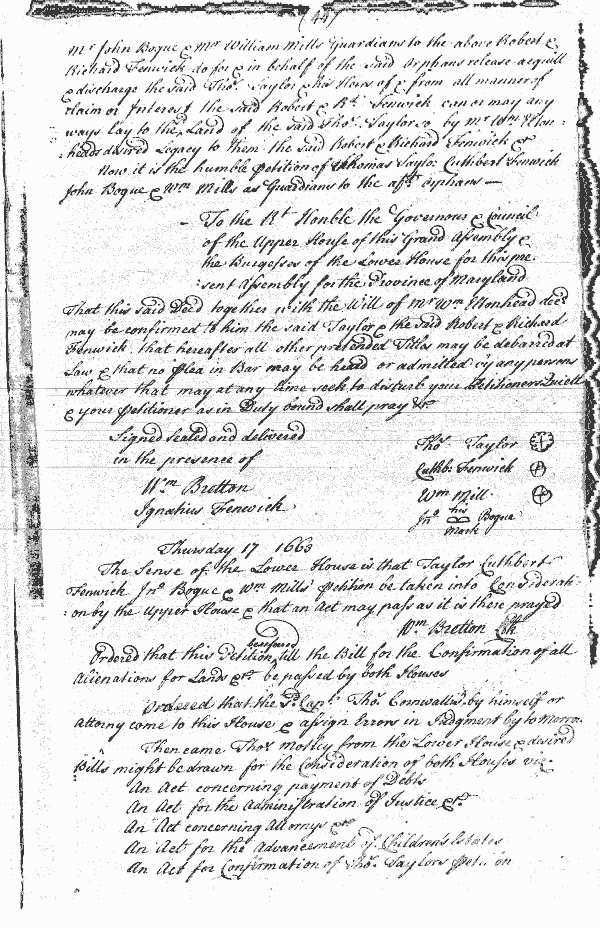 (447
Mr John Bogue & Mr William Mills Guardians to the above Robert &
Richard Fenwick do for & in behalf of the said Orphans release acquitt
& discharge the said Thos. Taylor & his Heirs of & from all manner of
claim or Interest the said Robert & Rd. Fenwick can or may any
ways lay to the Land of the said Thos. Taylor by Mr Wm Mon:
:heads desired Legacy to them the said Robert & Richard Fenwick &c
Now it is the humble Petition of Thomas Taylor Cuthbert Fenwick
John Bogue & Wm Mills as Guardians to the afd. Orphans —
— To the Rt Honble the Governour & Council
of the Upper House of this Grand Assembly &
the Burgesses of the Lower House for this pre:
:sent Assembly for the Province of Maryland
That this said Deed together with the Will of Mr Wm Monhead decd
may be confirmed to him the said Taylor & the said Robert & Richard
Fenwick, that hereafter all other pretended Titles may be debarred at
Law & that no Plea in Bar may be heard or admitted by any persons
whatever that may at any time seek to disturb your Petitioners Quiett
& your Petitioner as in Duty bound shall pray &c
Signed sealed and delivered
in the presence of
Wm Bretton
Ignatius Fenwick
Thos. Taylor
Cuthb: Fenwick
Wm Mill.
Jno his Bogue
mark
Thursday 17 1663
The Sense of the Lower House is that Taylor Cuthbert
Fenwick Jno Bogue & Wm Mills' Petition be taken into Considerati:
:on by the Upper House & that an Act may pass as it is there prayed
Wm Bretton Clk
Ordered that this Petition till the Bill for the Confirmation of all
Alienations for Lands &c be passed by both Houses
Ordered that the Sd Capt. Thos. Cornwallis by himself or
Attorny come to this House & assign Errors in Judgment by to Morro.
Then came Thos Motley from the Lower House & desired
Bills might be drawn for the Consideration of both Houses viz.
An Act concerning payment of Debts
An Act for the Administration of Justice &c.
An Act concerning Attornys &c
An Act for the Advancement of Children's Estates
An Act for Confirmation of Thos. Taylors Pet.. on